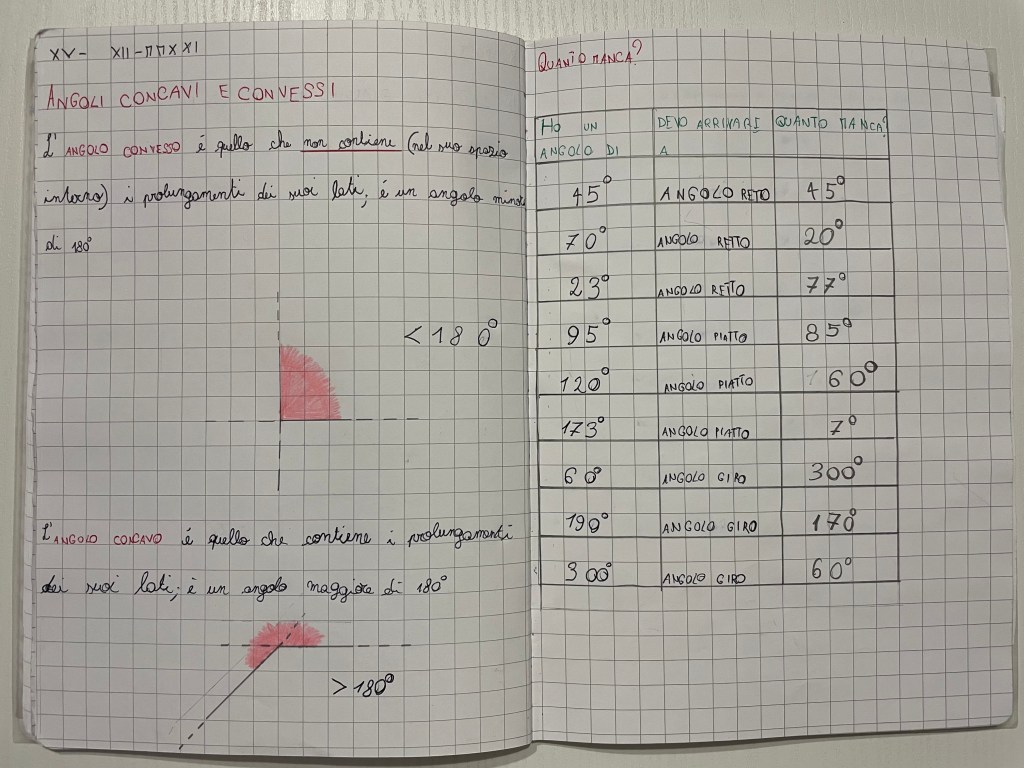 XV- XII-MMXXI
ANGOLI CONCAVI E CONVESSI
L'ANGOLO CONVESSO é quello che non contiene (nel suo spazio
interno) i prolungamenti dei suoi lati; é un angolo minore
di 180°
< 180°
L'ANGOLO CONCAVO é quello che contiene i prolungamenti
dei suoi lati; é un angolo maggiore di 180°
> 180°
QUANTO MANCA?
HO UN ANGOLO DI DEVO ARRIVARE A QUANTO MANCA?
45° ANGOLO RETO 45°
70° ANGOLO RETTO 20°
23° ANGOLO RETTO 77°
95° ANGOLO PIATTO 85°
120° ANGOLO PIATTO 60°
173° ANGOLO PIATTO 7°
60° ANGOLO GIRO 300°
190° ANGOLO GIRO 170°
300° ANGOLO GIRO 60°